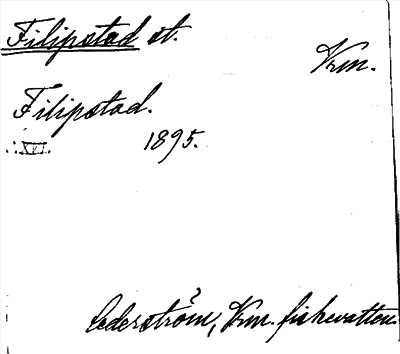 Filipstad st.
Vrm.
Filipstad.
1895.
Cederström, Vrm. fiskevatten.